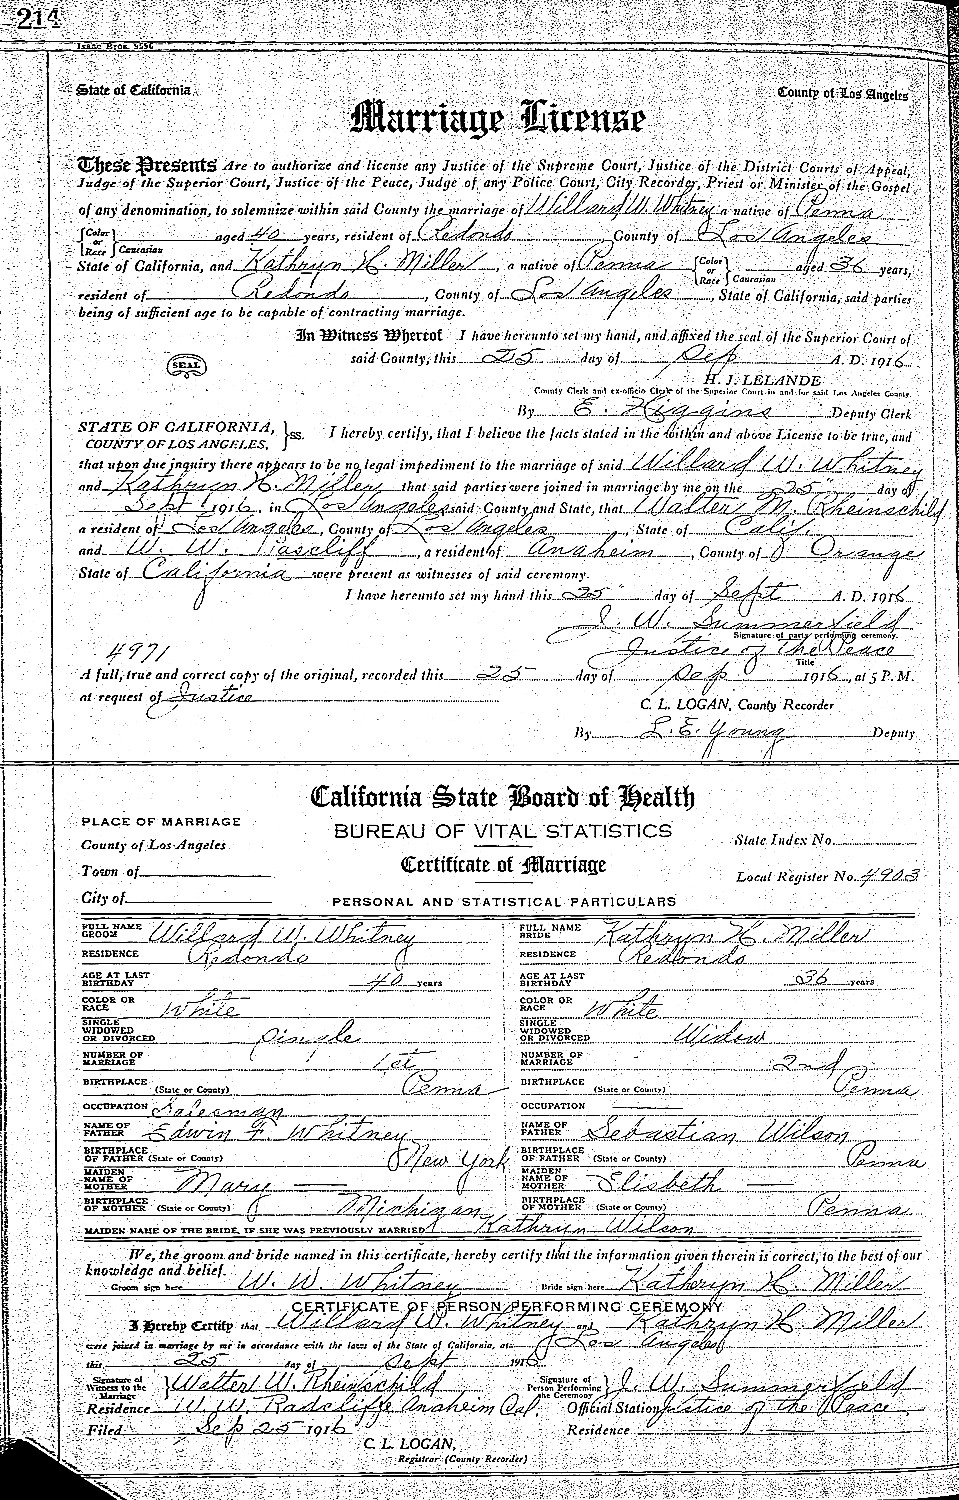 214
Isaac Bros. 5556
State of California
County of Los Angeles
Marriage License
These Presents Are to authorize and license any Justice of the Supreme Court, Justice of the District Courts of Appeal,
Judge of the Superior Court, Justice of the Peace, Judge of any Police Court, City Recorder, Priest or Minister of the Gospel
of any denomination, to solemnize within said County the marriage of Willard W. Whitney a native of Penna
Color or Race Caucasian aged 40 years, resident of Redondo County of Los Angeles
State of California, and Kathryn H. Miller, a native of Penna Color or Race Caucasian aged 36 years,
resident of Redondo, County of Los Angeles, State of California, said parties
being of sufficient age to be capable of contracting marriage.
In Witness Whereof I have hereunto set my hand, and affixed the seal of the Superior Court of
SEAL said County, this 25 day of Sep A. D. 1916
H. J. LELANDE
County Clerk and ex-officio Clerk of the Superior Court in and for said Los Angeles County.
By E. Higgins Deputy Clerk
STATE OF CALIFORNIA, COUNTY OF LOS ANGELES, } ss. I hereby certify, that I believe the facts stated in the within and above License to be true, and
that upon due inquiry there appears to be no legal impediment to the marriage of said Willard W. Whitney
and Kathryn H. Miller that said parties were joined in marriage by me on the 25" day of
Sept 1916, in Los Angeles said County and State, that Walter M. Rheinschild
a resident of Los Angeles, County of Los Angeles, State of Calif.
and W. W. , a resident of Anaheim, County of Orange
State of California were present as witnesses of said ceremony.
I have hereunto set my hand this 25" day of Sept A. D. 1916
J. W. Summerfield
Signature of party performing ceremony.
4971 Justice of the Peace
Title
A full, true and correct copy of the original, recorded this 25 day of Sep 1916, at 5 P. M.
at request of Justice
C. L. LOGAN, County Recorder
By L. E. Young Deputy
California State Board of Health
PLACE OF MARRIAGE
BUREAU OF VITAL STATISTICS
County of Los Angeles
State Index No.
Certificate of Marriage
Town of
Local Register No. 4903
City of
PERSONAL AND STATISTICAL PARTICULARS
FULL NAME GROOM Willard W. Whitney FULL NAME BRIDE Kathryn H. Miller
RESIDENCE Redondo RESIDENCE Redondo
AGE AT LAST BIRTHDAY 40 years AGE AT LAST BIRTHDAY 36 years
COLOR OR RACE White COLOR OR RACE White
SINGLE WIDOWED OR DIVORCED Single SINGLE WIDOWED OR DIVORCED Widow
NUMBER OF MARRIAGE 1st NUMBER OF MARRIAGE 2nd
BIRTHPLACE (State or County) Penna BIRTHPLACE (State or County) Penna
OCCUPATION Salesman OCCUPATION
NAME OF FATHER Edwin F. Whitney NAME OF FATHER Sebastian Wilson
BIRTHPLACE OF FATHER (State or County) New York BIRTHPLACE OF FATHER (State or County) Penna
MAIDEN NAME OF MOTHER Mary — MAIDEN NAME OF MOTHER Elisbeth —
BIRTHPLACE OF MOTHER (State or County) Michigan BIRTHPLACE OF MOTHER (State or County) Penna
MAIDEN NAME OF THE BRIDE, IF SHE WAS PREVIOUSLY MARRIED Kathryn Wilson
We, the groom and bride named in this certificate, hereby certify that the information given therein is correct, to the best of our
knowledge and belief.
Groom sign here W. W. Whitney Bride sign here Kathryn H. Miller
CERTIFICATE OF PERSON PERFORMING CEREMONY
I Hereby Certify that Willard W. Whitney and Kathryn H. Miller
were joined in marriage by me in accordance with the laws of the State of California, at Los Angeles
this 25 day of Sept 1916
Signature of Witness to the Marriage } Walter W. Rheinschild Signature of Person Performing the Ceremony } J. W. Summerfield
Residence W. W. Radcliffe Anaheim Cal. Official Station Justice of the Peace
Filed Sep 25 1916 Residence — —
C. L. LOGAN,
Registrar (County Recorder)